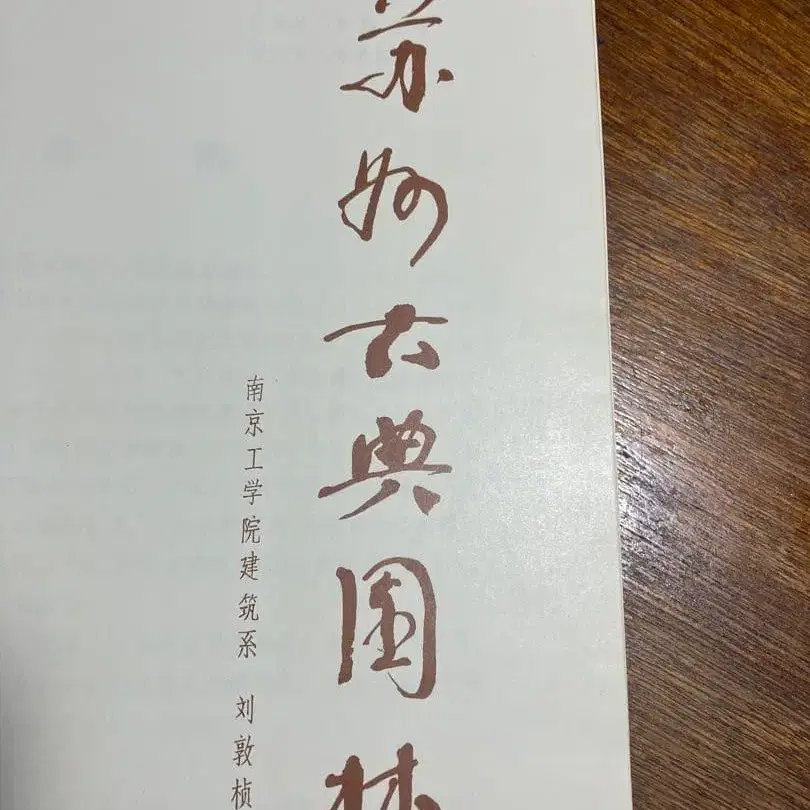 苏州古典园林
南京工学院建筑系 刘敦桢